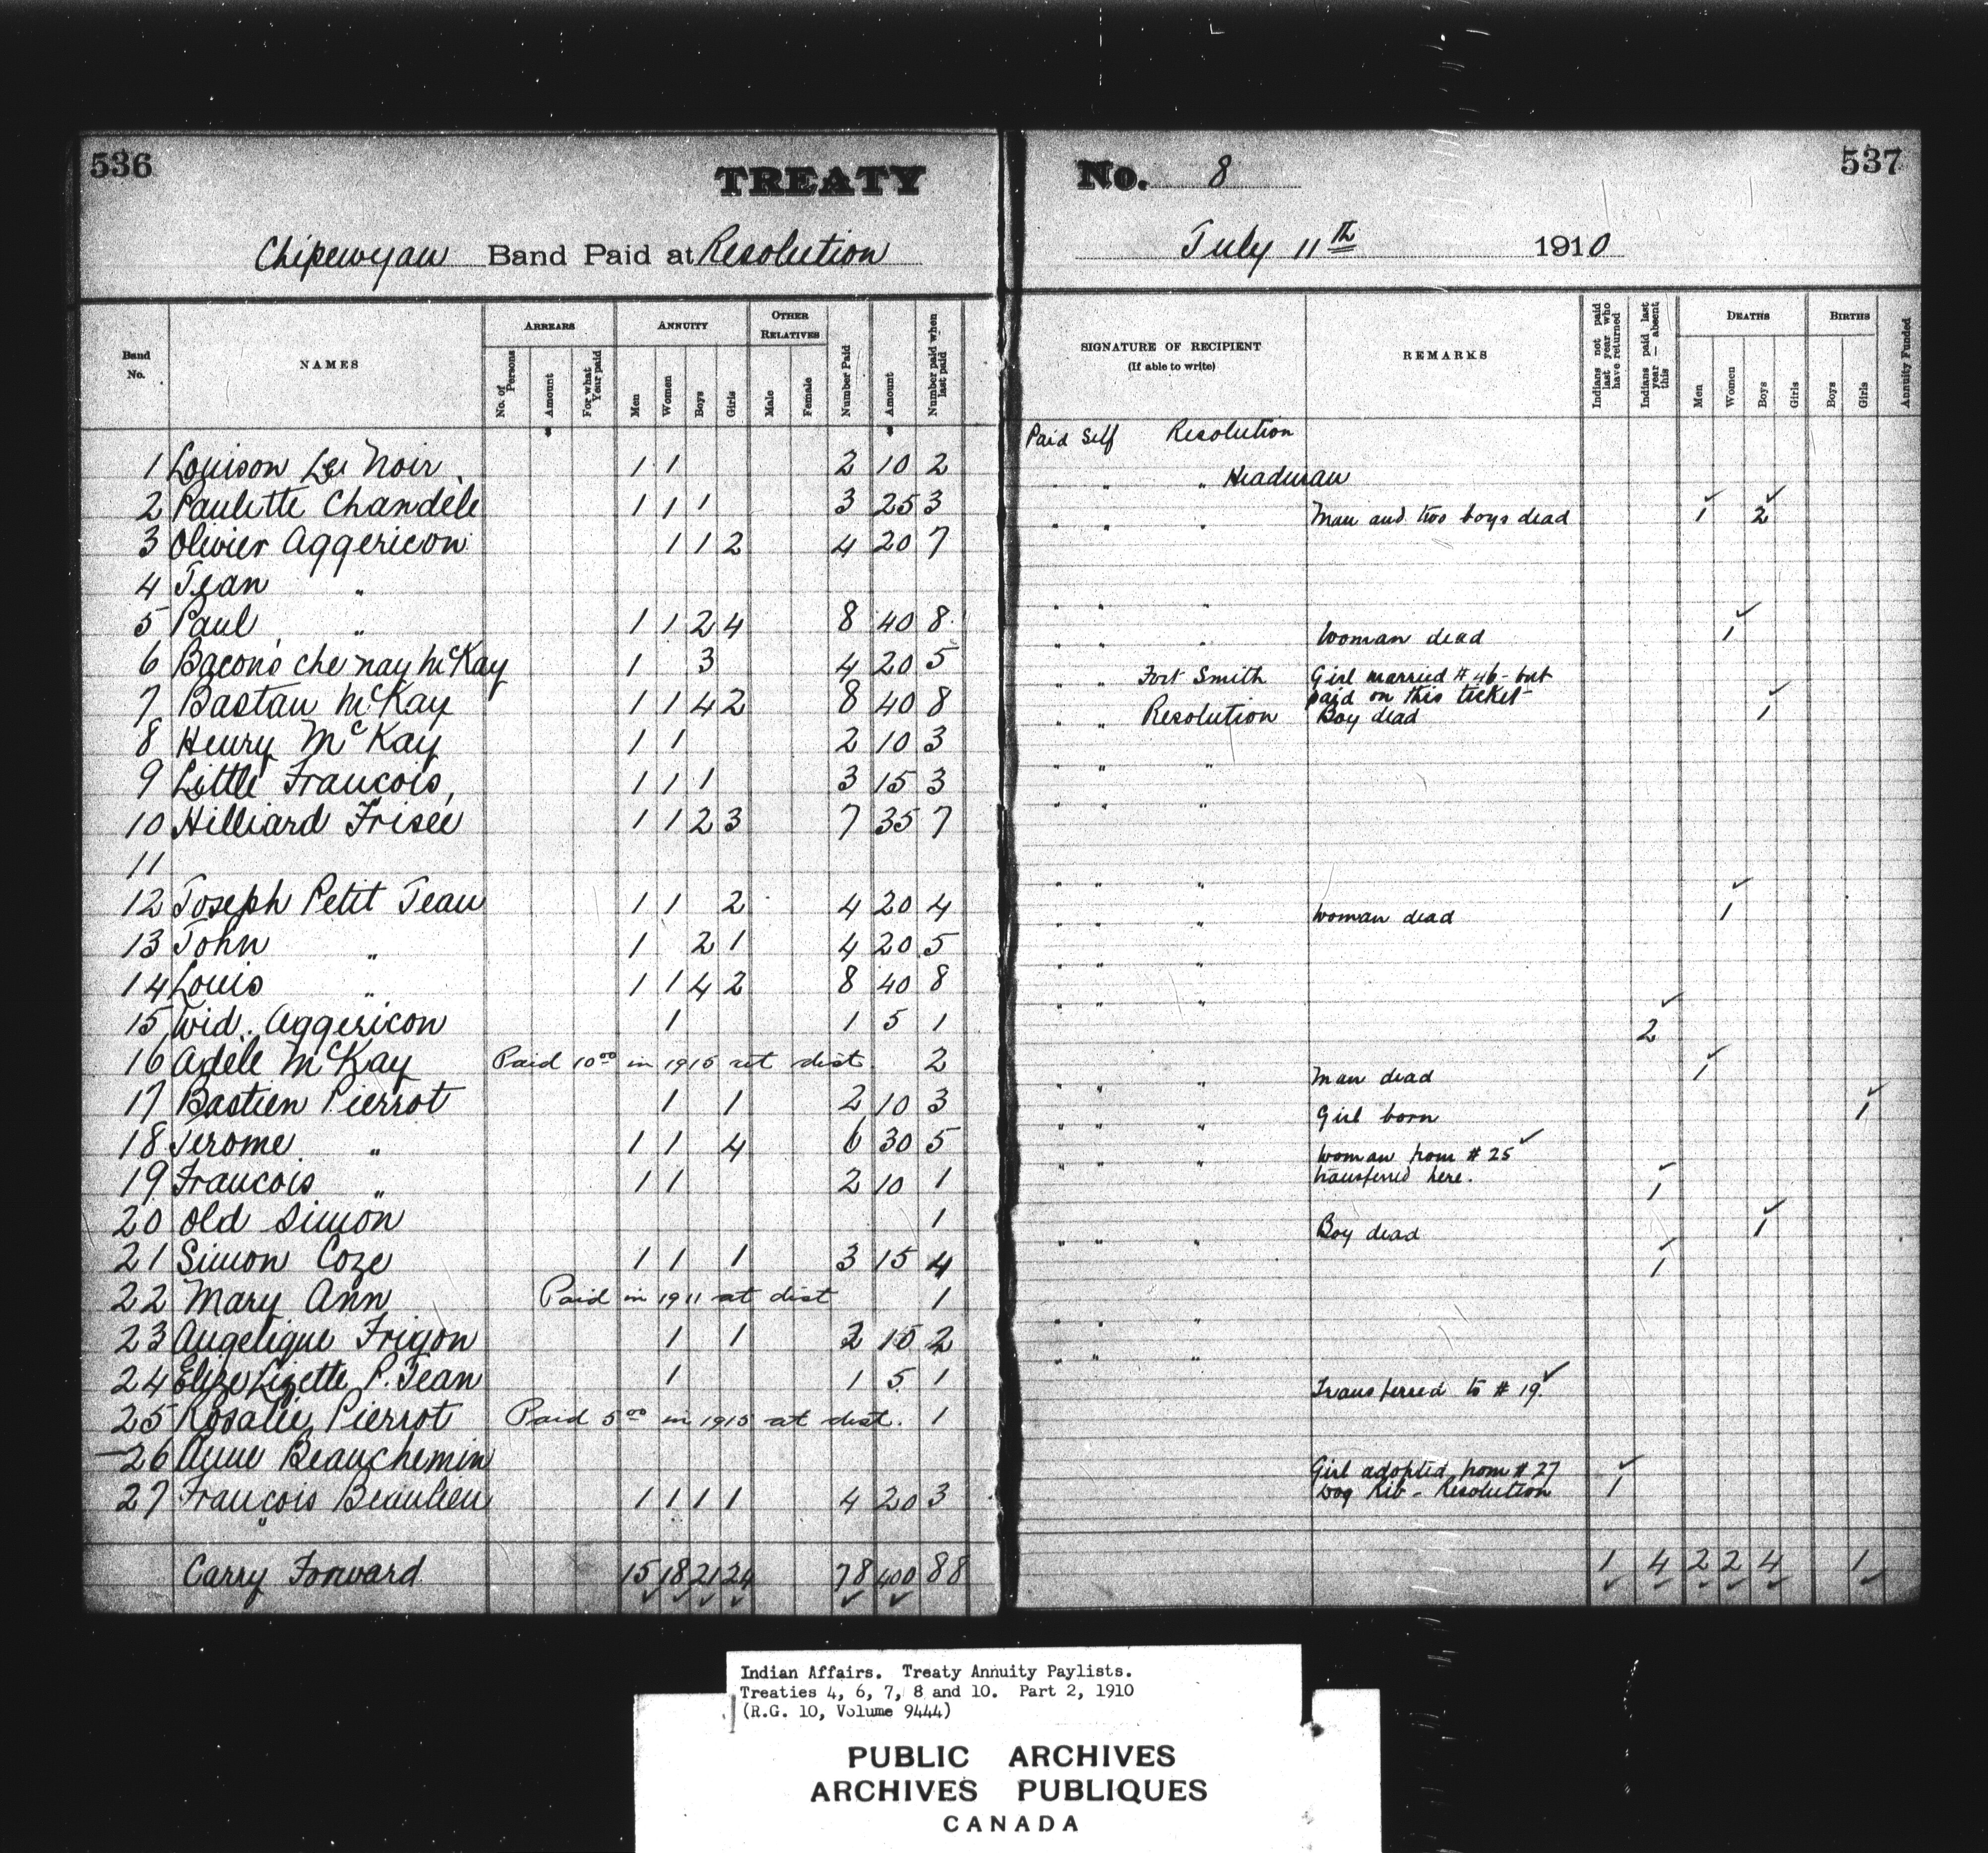 536
TREATY
No. 8
537
Chipewyan Band Paid at Resolution
July 11th 1910
Band No.
NAMES
ARREARS
No. of Persons
Amount
For what Year paid
ANNUITY
Men
Women
Boys
Girls
OTHER RELATIVES
Male
Female
Number Paid
Amount
Number paid when last paid
SIGNATURE OF RECIPIENT
(If able to write)
REMARKS
Indians not paid last year who have returned
Indians paid last year — absent this
DEATHS
Men
Women
Boys
Girls
BIRTHS
Boys
Girls
Annuity Funded
1 Louison Le Noir 1 1 2 10 2 Paid Self Resolution
2 Paulette Chandele 1 1 1 3 25 3 " " " Headman
3 Olivier Aggericon 1 1 2 4 20 7 " " " Man and two boys dead 1 2
4 Jean "
5 Paul " 1 1 2 4 8 40 8 " " "
6 Bacons che nay McKay 1 3 4 20 5 " " " Woman dead 1
7 Bastan McKay 1 1 4 2 8 40 8 " " Fort Smith Girl married # 46 - but paid on this ticket
8 Henry McKay 1 1 2 10 3 " " Resolution Boy dead 1
9 Little Francois, 1 1 1 3 15 3 " " "
10 Hilliard Frisee 1 1 2 3 7 35 7 " " "
11
12 Joseph Petit Jean 1 1 2 4 20 4 " " "
13 John " 1 2 1 4 20 5 " " " Woman dead 1
14 Louis " 1 1 4 2 8 40 8 " " "
15 Wid. Aggericon 1 1 5 1 " " "
16 Adele McKay Paid 10.00 in 1915 at dist. 2 2
17 Bastien Pierrot 1 1 2 10 3 " " " Man dead 1
18 Jerome " 1 1 4 6 30 5 " " " Girl born 1
19 Francois " 1 1 2 10 1 " " " Woman from # 25 transferred here.
20 Old Simon 1 1
21 Simon Coze 1 1 1 3 15 4 " " " Boy dead 1
22 Mary Ann Paid in 1911 at dist 1 1
23 Angelique Frigon 1 1 2 15 2 " " "
24 Elize Lizette P. Jean 1 1 5 1 " " "
25 Rosalie Pierrot Paid 5.00 in 1915 at dist. 1 Transferred to # 19.
26 Anne Beauchemin
27 François Beaulieu 1 1 1 1 4 20 3 Girl adopted from # 27 Dog Rib - Resolution 1
Carry Forward 15 18 21 24 78 400 88 1 4 2 2 4 1
Indian Affairs. Treaty Annuity Paylists.
Treaties 4, 6, 7, 8 and 10. Part 2, 1910
(R.G. 10, Volume 9444)
PUBLIC ARCHIVES
ARCHIVES PUBLIQUES
CANADA